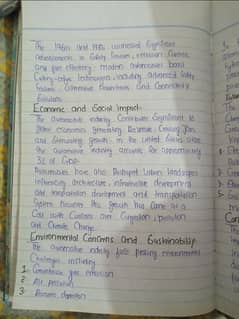 The 1960s and 1970s witnessed significant
advancements in Safety features, emission Control
and fuel efficiency. modern automobiles boast
Cutting-edge technologies, including advanced Safety
features, alternative Powertrains and Connectivity
Solutions.
Economic and Social Impact:-
The automotive industry Contributes Significantly to
global economies, generating Revenue, Creating Jobs
and Stimulating growth. in the United States alone
the automotive industry accounts for approximately
3% of GDP.
Automobiles have also Reshaped Urban landscapes
influencing architecture, infrastructure development
and transportation development and transportation
System. However this growth has Came at a
Cost with Concerns over Congestion, pollution
and Climate Change.
Environmental Concerns and Sustainability
The automotive industry faces pressing environmental
Challenges, including
1- Greenhouse gas emission
2 Air pollution
3- Resource depletion